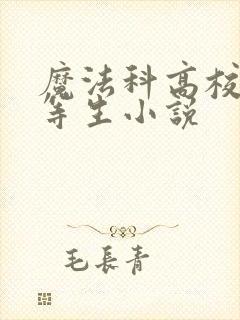 魔法科高校
等生小説
毛長青